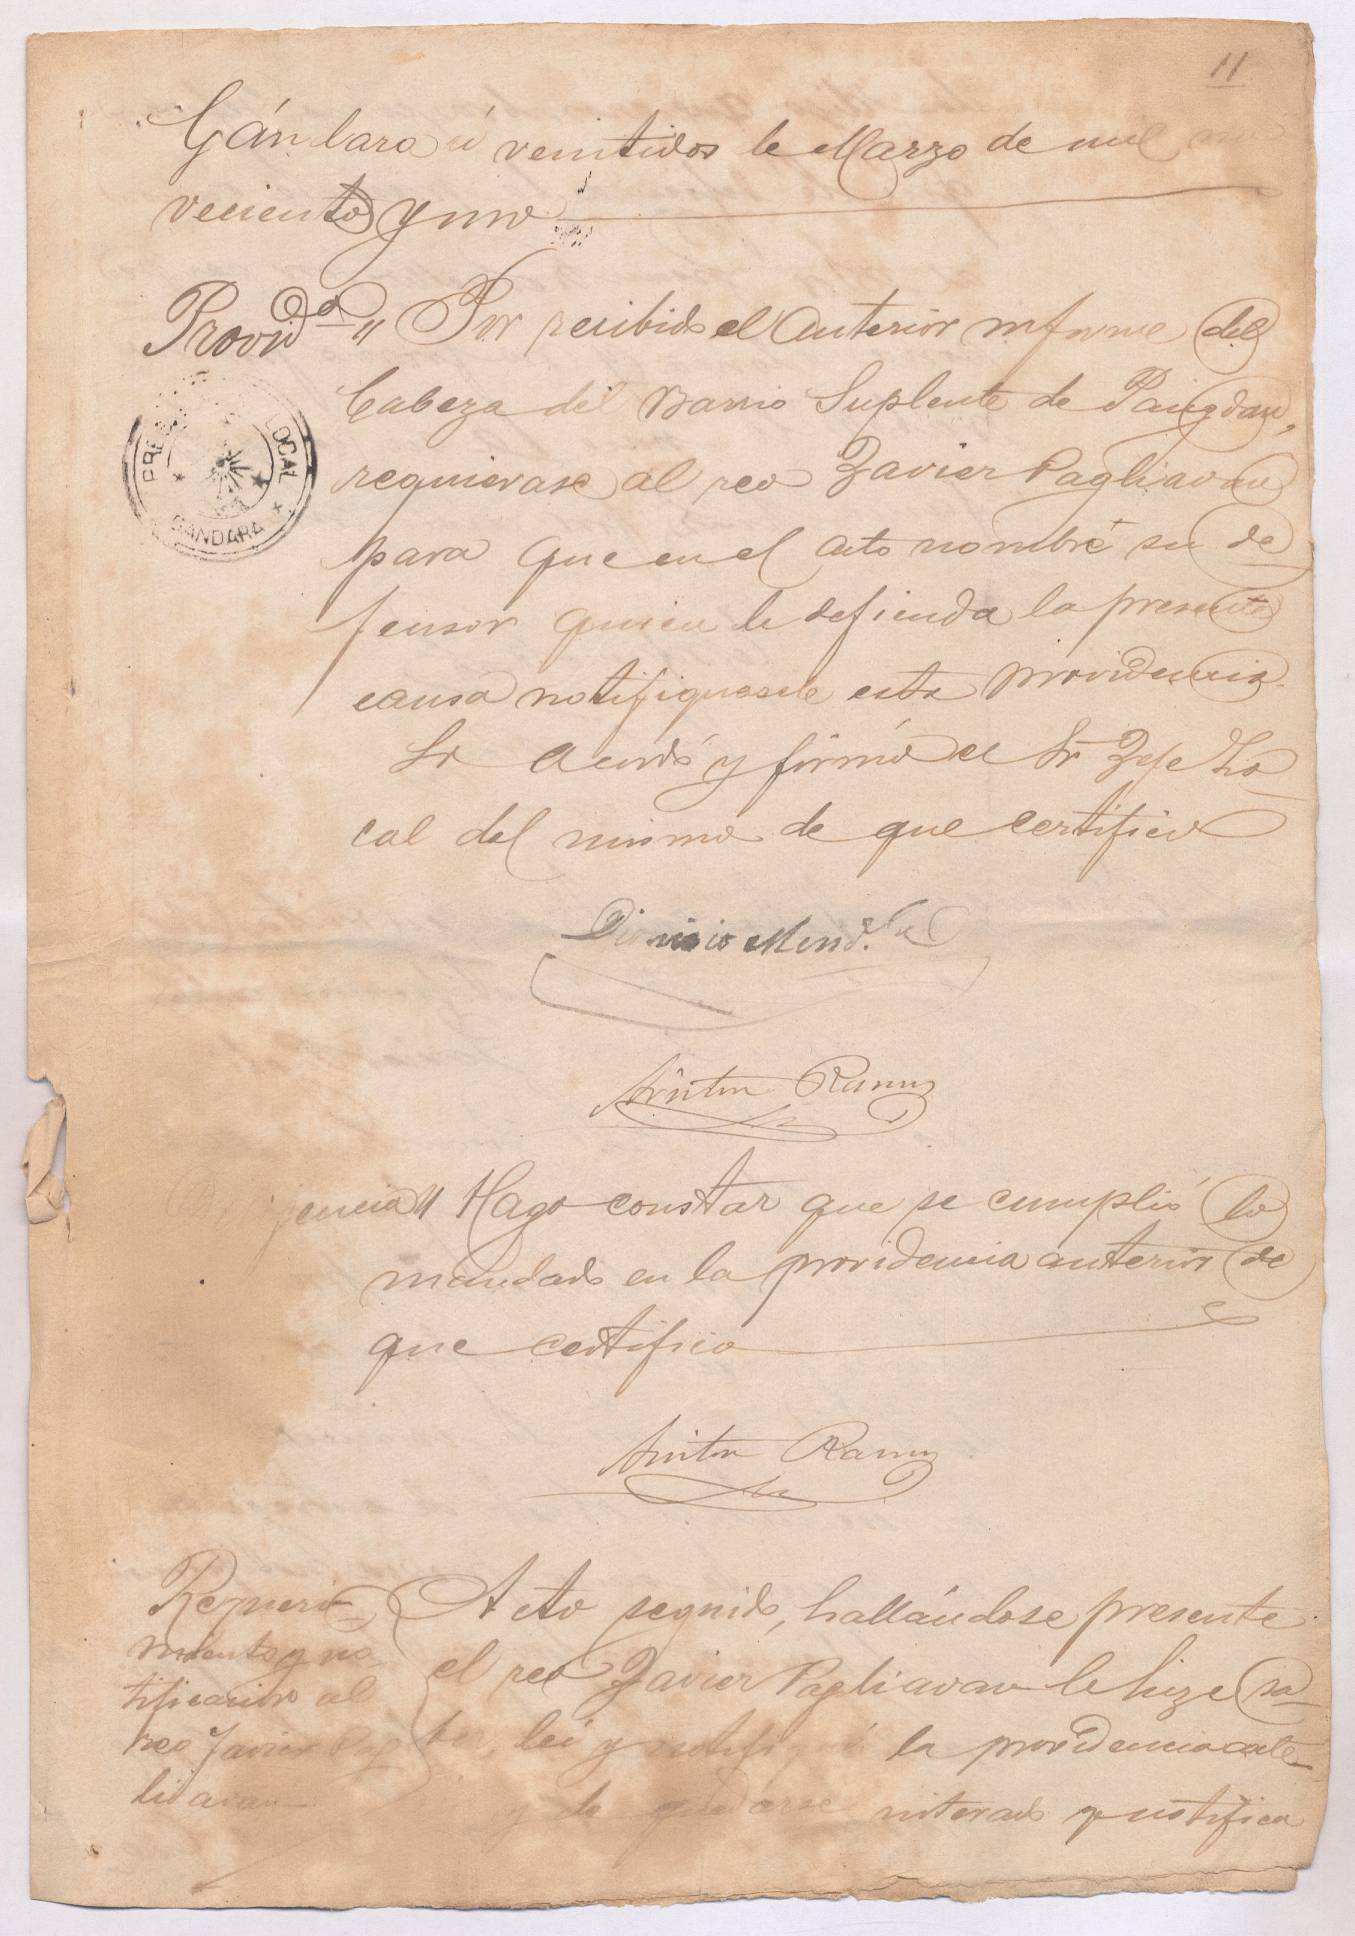 11
Gándara á veintidos de Marzo de mil no
veciento y uno
Provid.ª " Por recibido el anterior informe del
Cabeza del Barrio Suplente de Pangdan,
requierase al reo Javier Pagliawan
para que en el acto nombre su de
fensor quien le defienda la presente
causa notifiquesele esta providencia.
Lo acordó y firmó el Sr Jefe Lo
cal del mismo de que certifico
PRE LOCAL
GANDARA
Dionisio Mend.
Ramz
Diligencia " Hago constar que se cumplió lo
mandado en la providencia anterior de
que certifico
Ramz
Requeri
miento y no
tificacion al
reo Javier Pag
liawan
Acto seguido, hallándose presente
el reo Javier Pagliawan le hize sa
ber, leí y notifiqué la providencia ante
y de quedarse enterado y notifica